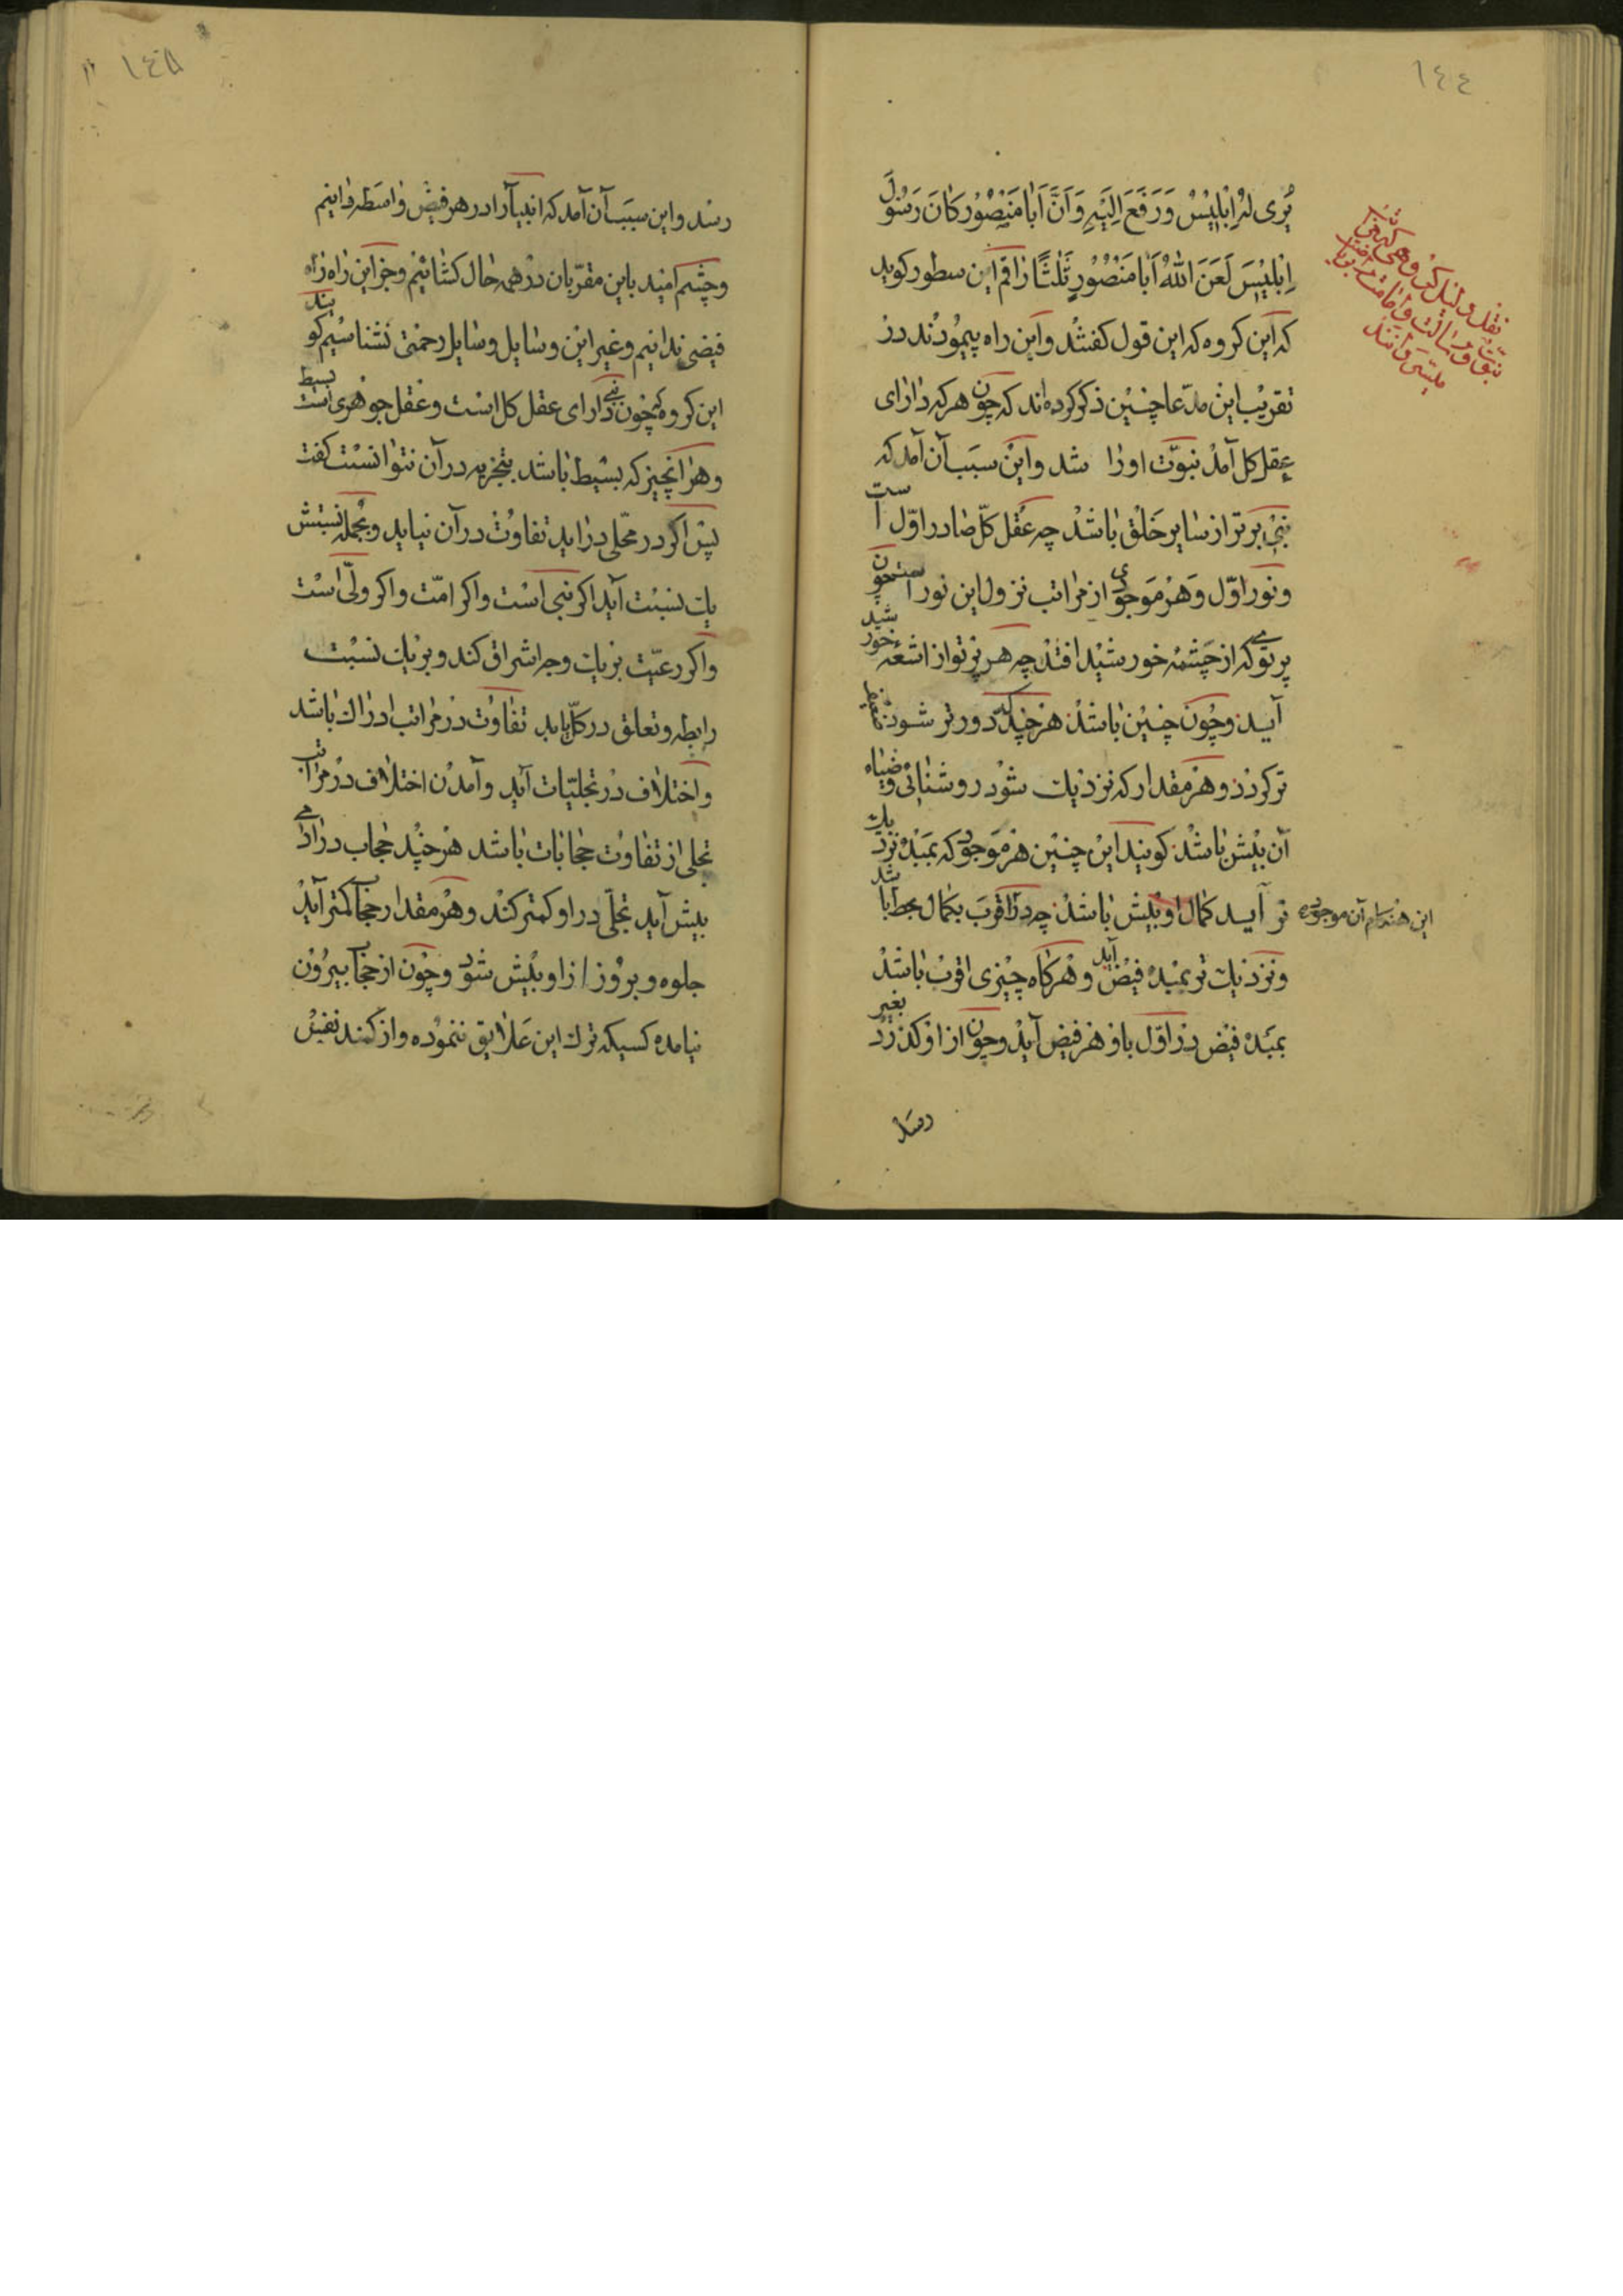 ١٤٤
یُرٰی لَهُ اِبْلِیْسُ وَرَفَعَ اِلَیْهِ وَاَنَّ اَبٰا مَنْصُوْر کٰانَ رَسُوْلَ
اِبْلِیْسَ لَعَنَ اللهُ اَبٰا مَنْصُوْرٍ ثَلٰثًا رٰاقم این سطور کوید
که این کروه که این قول کفتند و این راه پیمودند در
تقریب این مدّعا چنین ذکر کرده اند که چون هر که دارای
عقل کل آمد نبوّت اورا شد و این سبب آن آمد که
نبی برتر از سایر خلق باشد چه عقل کلّ صادر اوّل است
و نور اوّل و هر موجودی از مراتب نزول این نور است چون
پرتوی که از چشمه خورشید افتد چه هر پرتو از اشعه خورشید
آید و چون چنین باشد هر چند که دورتر شود ضعیف
تر کردد و هر مقدار که نزدیك شود روشنائی و ضیاء
آن بیش باشد کویند این چنین هر موجود که بمبدء نزدیك
تر آید کمال او بیش باشد چه در اقرب بکمال
و نزدیك تر بمبدء فیض آید و هر کاه چیزی اقرب باشد بغیر
بمبدء فیض در اوّل باو هر فیض آید و چون از او کذرد
رسد
نقل دلیل کروهی که
نبوّت و رسالت و امامت
این هنکام آن موجود
١٤٥
رسد و این سبب آن آمد که انبیآ را در هر فیض واسطه دانیم
و چشم امید باین مقرّبان در همه حال کشائیم و جز این راه راه
فیضی ندانیم و غیر این وسایل وسایل رحمتی نشناسیم کویند
این کروه که چون نبی دارای عقل کل است و عقل جوهری بسیط است
و هر آنچیز که بسیط باشد بتجزیه در آن نتوانست کفت
پس اکر در محلّی دراید تفاوت در آن نیاید و بجمله نسبتش
یك نسبت آید اکر نبی است و اکر امّت و اکر ولّی است
و اکر رعیّت بریك وجه اشراق کند و بریك نسبت
رابطه و تعلق در کلّ یابد تفاوت در مراتب ادراك باشد
و اختلاف در تجلیّات آید و آمدن اختلاف در مراتب
تجلی از تفاوت حجابات باشد هر چند حجاب در ادراك
بیش آید تجلّی در او کمتر کند و هر مقدار حجاب کمتر آید
جلوه و بروز از او بیش شود و چون از حجاب بیرون
نیامده کسیکه ترك این علایق ننموده و از کمند نفیس